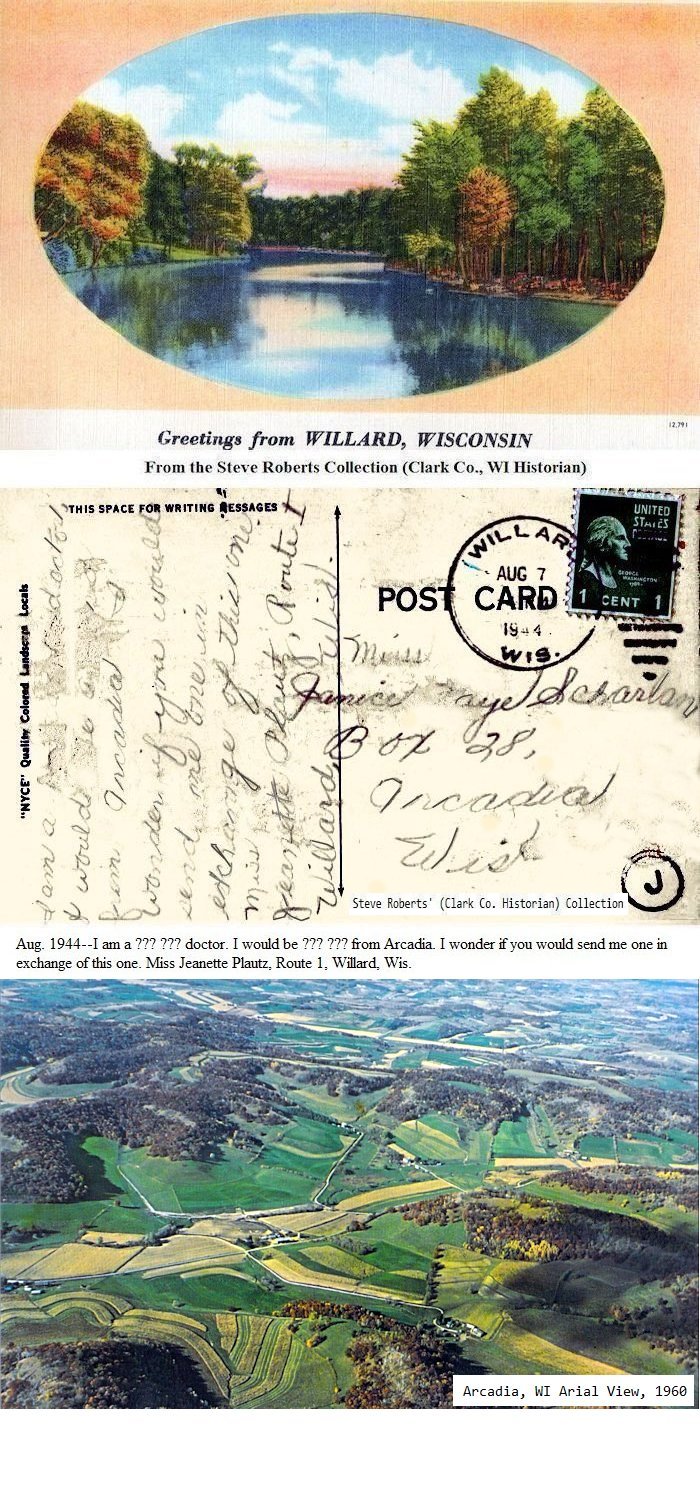 12,791
Greetings from WILLARD, WISCONSIN
From the Steve Roberts Collection (Clark Co., WI Historian)
THIS SPACE FOR WRITING MESSAGES
"NYCE" Quality Colored Landscape Locals
I am a doctor
I would be
from Arcadia I
wonder if you would
send me one in
exchange of this one.
Miss
Jeanette Plautz, Route 1
Willard, Wis.
POST CARD
WILLAR
AUG 7
1944
WIS.
UNITED
STATES
POSTAGE
GEORGE
WASHINGTON
1 CENT 1
Miss
Janice aye Scharlau
Box 28,
Arcadia
Wis
J
Steve Roberts' (Clark Co. Historian) Collection
Aug. 1944--I am a ??? ??? doctor. I would be ??? ??? from Arcadia. I wonder if you would send me one in
exchange of this one. Miss Jeanette Plautz, Route 1, Willard, Wis.
Arcadia, WI Arial View, 1960